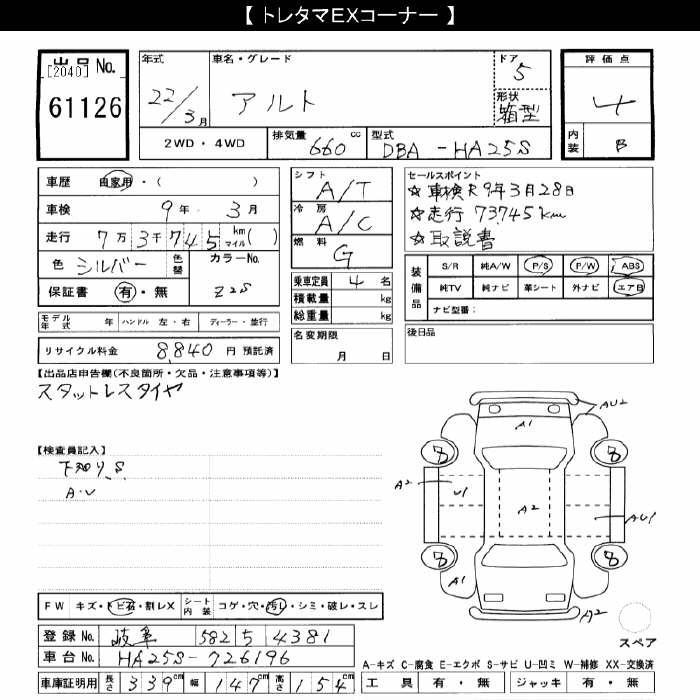 【 トレタマEXコーナー 】
出品 No.
[2040]
61126
年式
22/3月
車名・グレード
アルト
ドア
5
形状
箱型
評価点
4
内装
B
2WD・4WD
排気量 660 cc
型式 DBA-HA25S
車歴 自家用・( )
車検 9年 3月
走行 7万3千745 km マイル( )
色 シルバー 色替
カラーNo.
Z2S
保証書 有・無
シフト
A/T
冷房
A/C
燃料
G
乗車定員 4 名
積載量 kg
総重量 kg
セールスポイント
☆車検R9年3月28日
☆走行 73745km
☆取説書
装備品
S/R 純A/W P/S P/W ABS
純TV 純ナビ 革シート 外ナビ エアB
ナビ型番:
モデル年式 年 ハンドル 左・右 ディーラー・並行
リサイクル料金 8,840 円 預託済
名変期限
月 日
後日品
【出品店申告欄(不良箇所・欠品・注意事項等)】
スタットレスタイヤ
【検査員記入】
下知り、S
A・U
AU2
A1
8
8
A2
U1
A2
AU1
8
8
A1
A2
スペア
FW キズ・トビ石・割レX
シート内装 コゲ・穴・汚レ・シミ・破レ・スレ
登録No. 岐阜 582 5 4381
車台No. HA25S-726196
車庫証明用 長さ 339cm 幅 147cm 高さ 154cm
A-キズ C-腐食 E-エクボ S-サビ U-凹ミ W-補修 XX-交換済
工具 有・無 ジャッキ 有・無